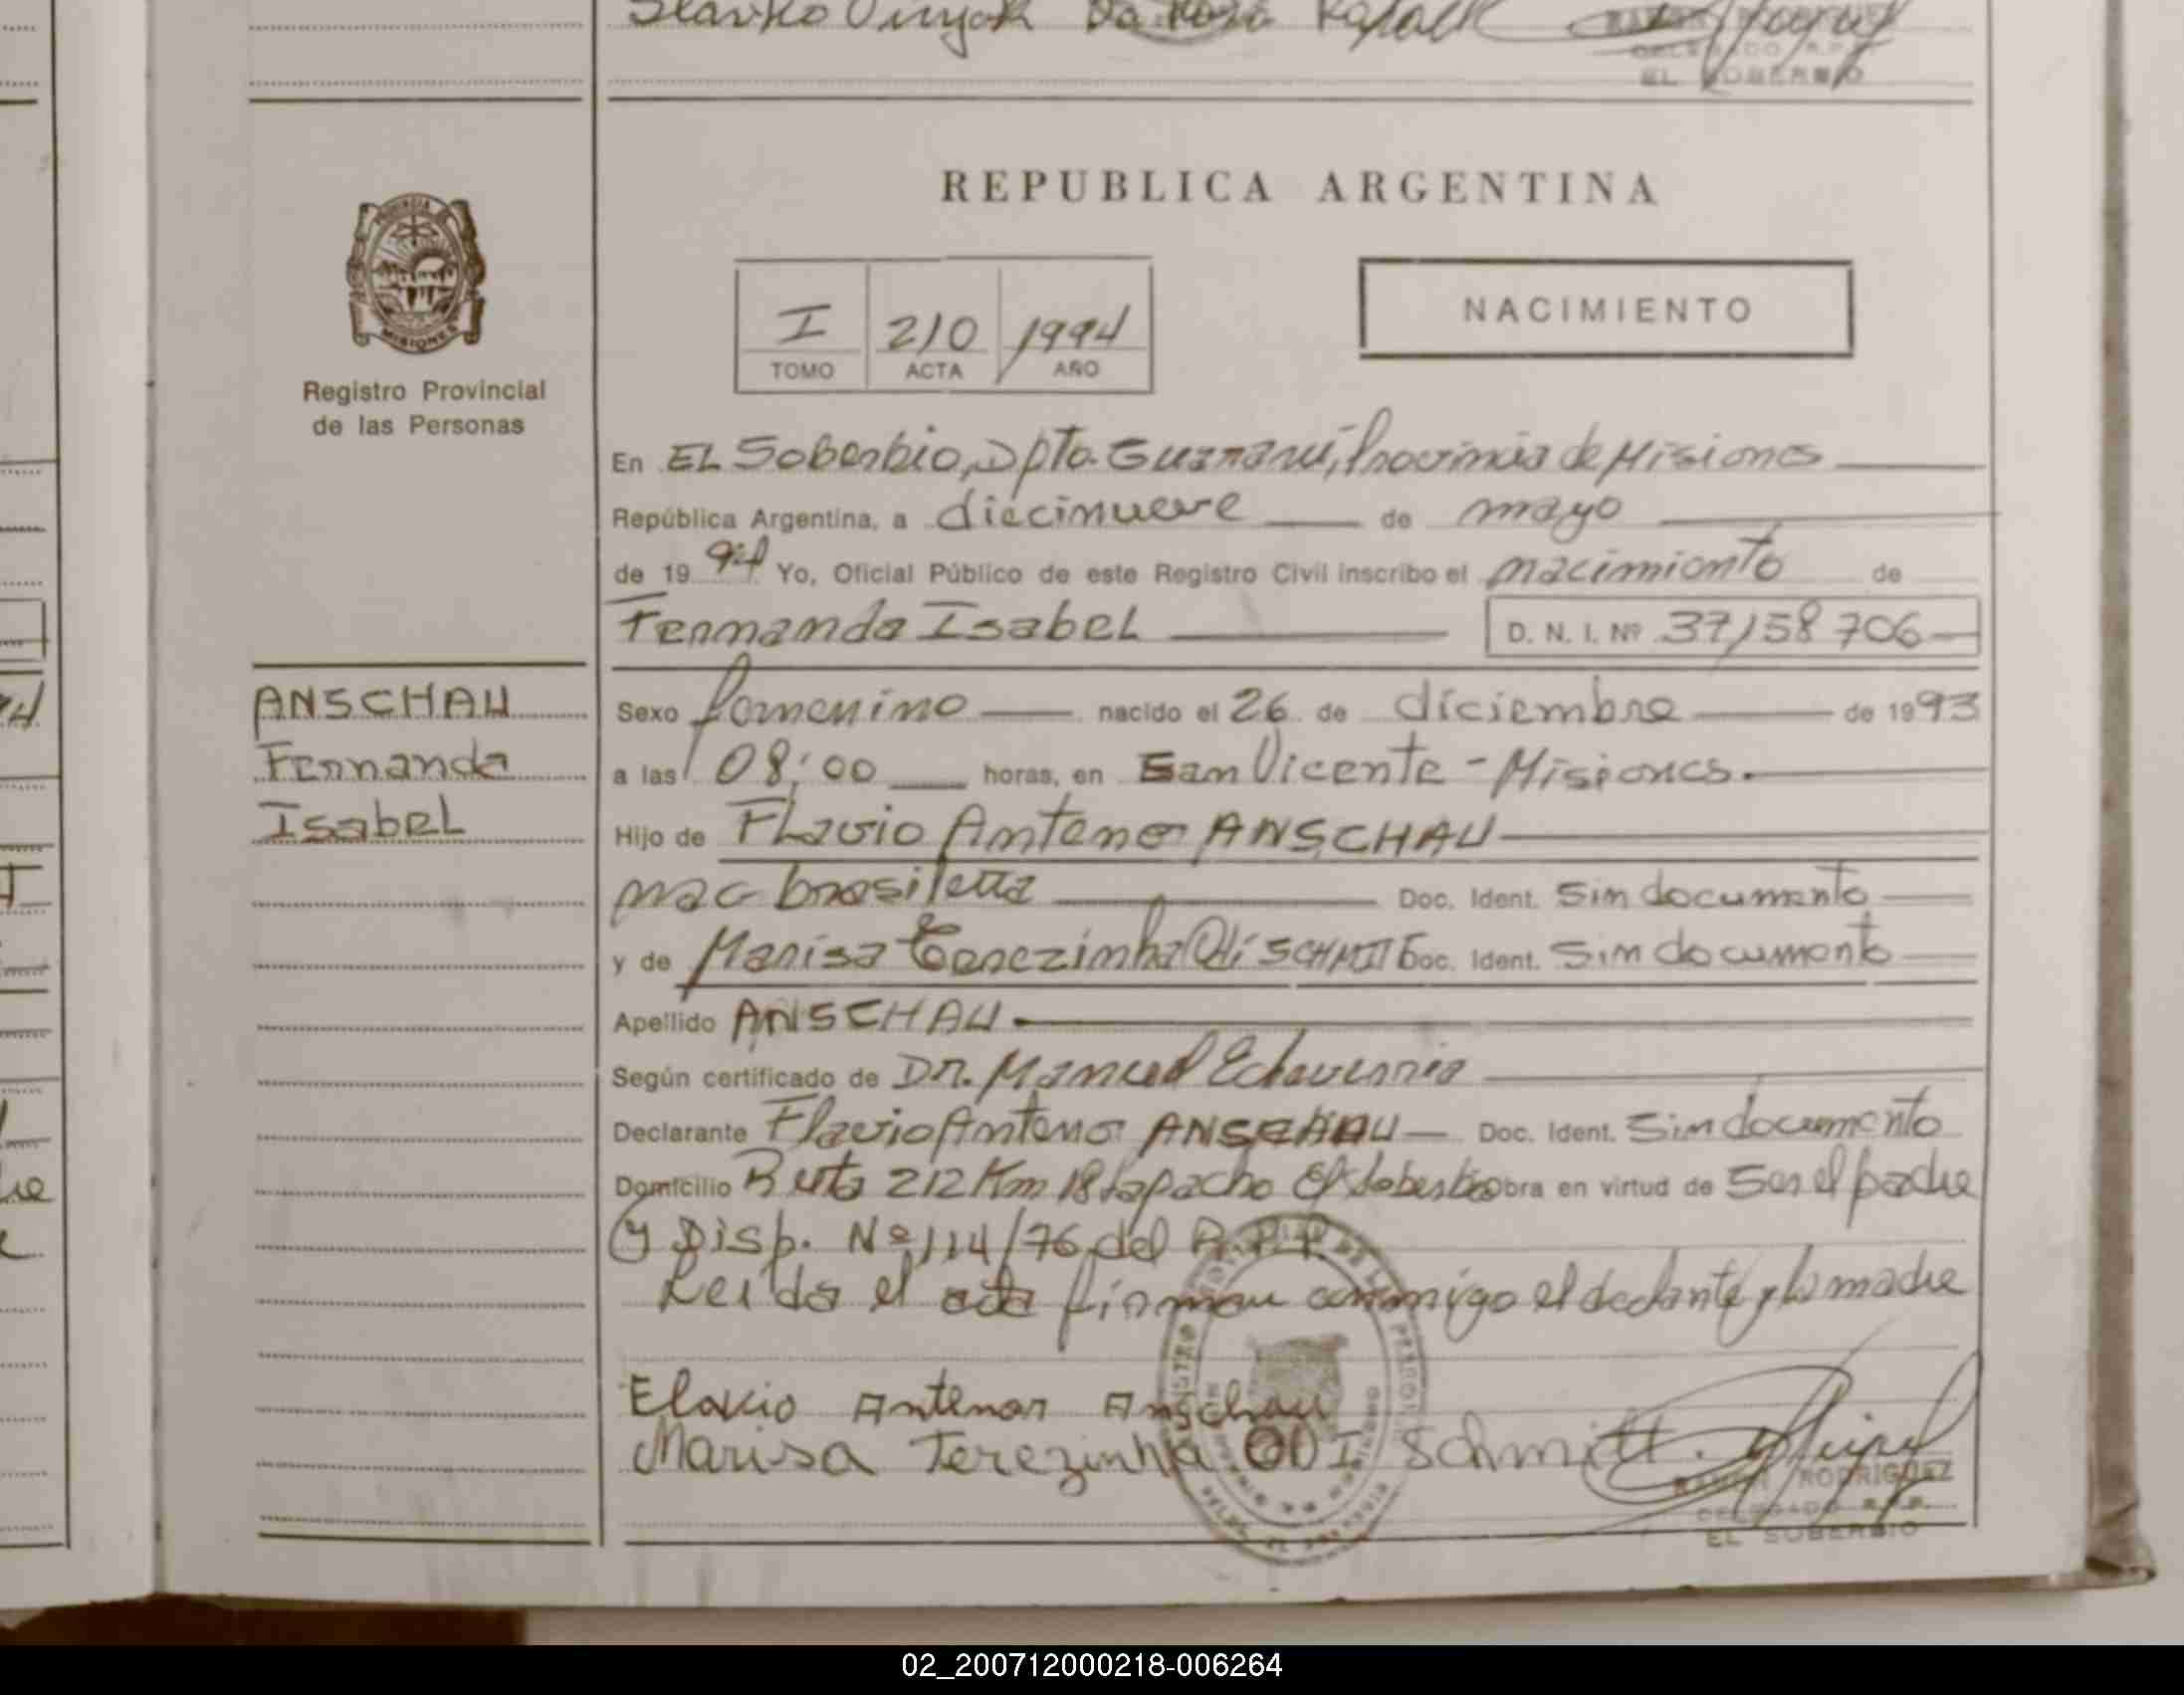 Slavko Da Rosa
DELEGADO R.P.P.
EL SOBERBIO
REPUBLICA ARGENTINA
PROVINCIA DE
MISIONES
Registro Provincial
de las Personas
I 210 1994
TOMO ACTA AÑO
NACIMIENTO
En EL Soberbio, Dpto. Guaraní, Provincia de Misiones
República Argentina, a diecinueve de mayo
de 19 94 Yo, Oficial Público de este Registro Civil inscribo el nacimiento de
Fernanda Isabel D. N. I. Nº 37158706
ANSCHAU
Fernanda
Isabel
Sexo femenino nacido el 26 de diciembre de 1993
a las 08:00 horas, en San Vicente - Misiones.
Hijo de Flavio Antenor ANSCHAU
nac brasilera Doc. Ident. Sin documento
y de Marisa Terezinha Odi SCHMITT Doc. Ident. Sin documento
Apellido ANSCHAU
Según certificado de Dr. Manuel Echeverria
Declarante Flavio Antenor ANSCHAU Doc. Ident. Sin documento
Domicilio Ruta 212 Km 18 Lapacho El Soberbio Obra en virtud de Ser el padre
y Disp. Nº 114/76 del R.P.P.
Leída el acta firman conmigo el declante y la madre
Flavio Antenor Anschau
Marisa Terezinha ODI Schmitt.
RAMON RODRIGUEZ
DELEGADO R.P.P.
EL SOBERBIO
02_200712000218-006264